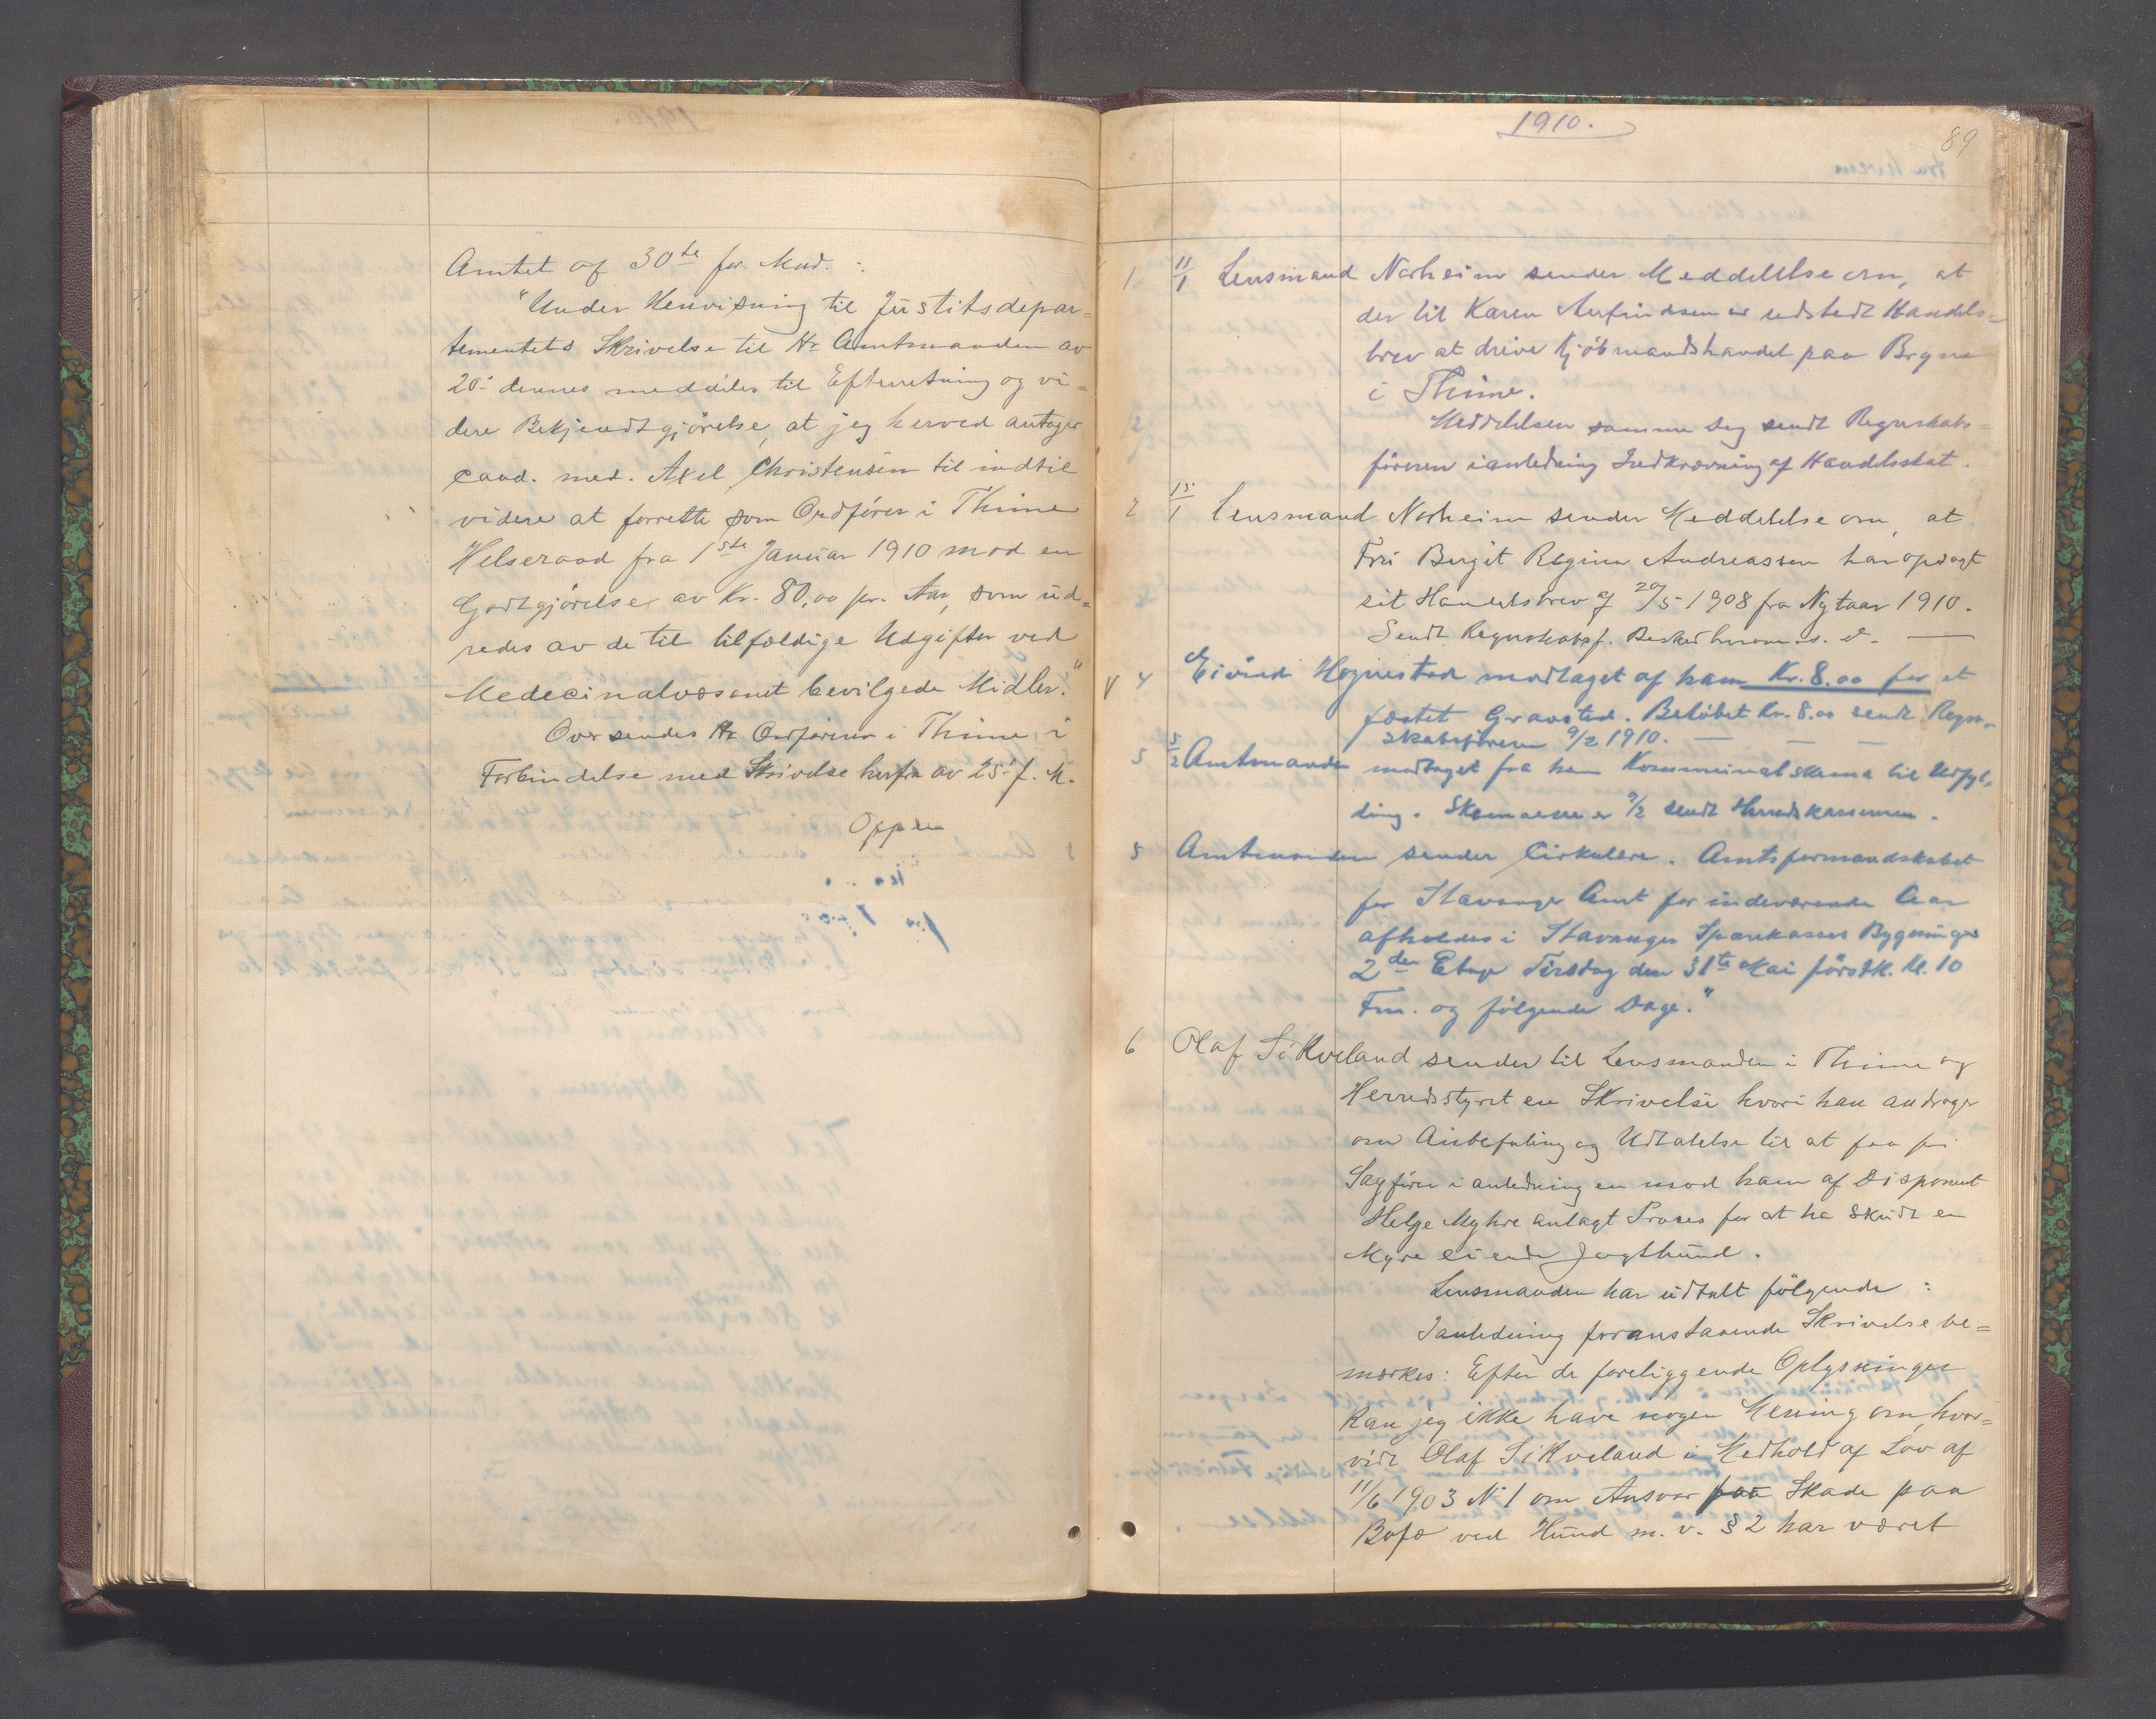 Amtet af 30te for. Mnd. :
"Under Henvisning til Justitsdepar=
tementets Skrivelse til Hr Amtmanden av
20. dennes meddeles til Efterretning og vi=
dere Bekjendtgjörelse, at jeg herved antager
cand. med. Axel Christensen til indtil
videre at forrette som Ordfører i Thime
Helseraad fra 1ste Januar 1910 mod en
Godtgjörelse av Kr. 80,00 pr. Aar, som ud=
redes av de til tilfældige Udgifter ved
Medecinalvæsenet bevilgede Midler."
Oversendes Hr Ordføreren i Thime i
Forbindelse med Skrivelse herfra av 25. f. M.
1910.
89
1 11/1 Lensmand Norheim sender Meddelelse om, at
der til Karen Aufindsen er udstedt Handels=
brev at drive Kjöbmandshandel paa Bryne
i Thime.
Meddelelsen samme Dag sendt Regnskabs=
föreren i anledning Indkrævning af Handelsskat.
2 15/1 Lensmand Norheim sender Meddelelse om, at
Fru Bergit Regine Andreassen har opsagt
sit Handelsbrev af 20/5 1908 fra Nytaar 1910.
Sendt Regnskabsf.
4 Eivind Hognestad modtaget af ham Kr. 8.00 for et
fæstet Gravsted. Beløbet Kr. 8.00 sendt Regn=
skabsføreren 9/2 1910.
5 5/2 Amtmanden modtaget fra ham Kommunalskema til Udfyl=
ding. Skemaerne er 9/2 sendt Herredskassereren.
5 Amtmanden sender Cirkulære. Amtsformandskabet
for Stavanger Amt for indeværende Aar
afholdes i Stavanger Sparekasses Bygninger
2den Etage Tirsdag den 31te Mai förstk. Kl. 10
Fm. og følgende Dage."
6 Olaf Sikveland sender til Lensmanden i Thime og
Herredsstyret en Skrivelse hvori han andrager
om Anbefaling og Udtalelse til at faa fri
Sagfører i anledning en mod ham af Disponent
Helge Myhre anlagt Proses for at ha skudt en
Myre eiende Jagthund.
Lensmanden har udtalt følgende :
I anledning foranstaaende Skrivelse be=
mærkes: Efter de foreliggende Oplysninger
kan jeg ikke have nogen Mening om, hvor=
vidt Olaf Sikveland i Medhold af Lov af
11/6 1903 N. 1 om Ansvar paa Skade paa
Bufæ ved Hund m. v. § 2 har været